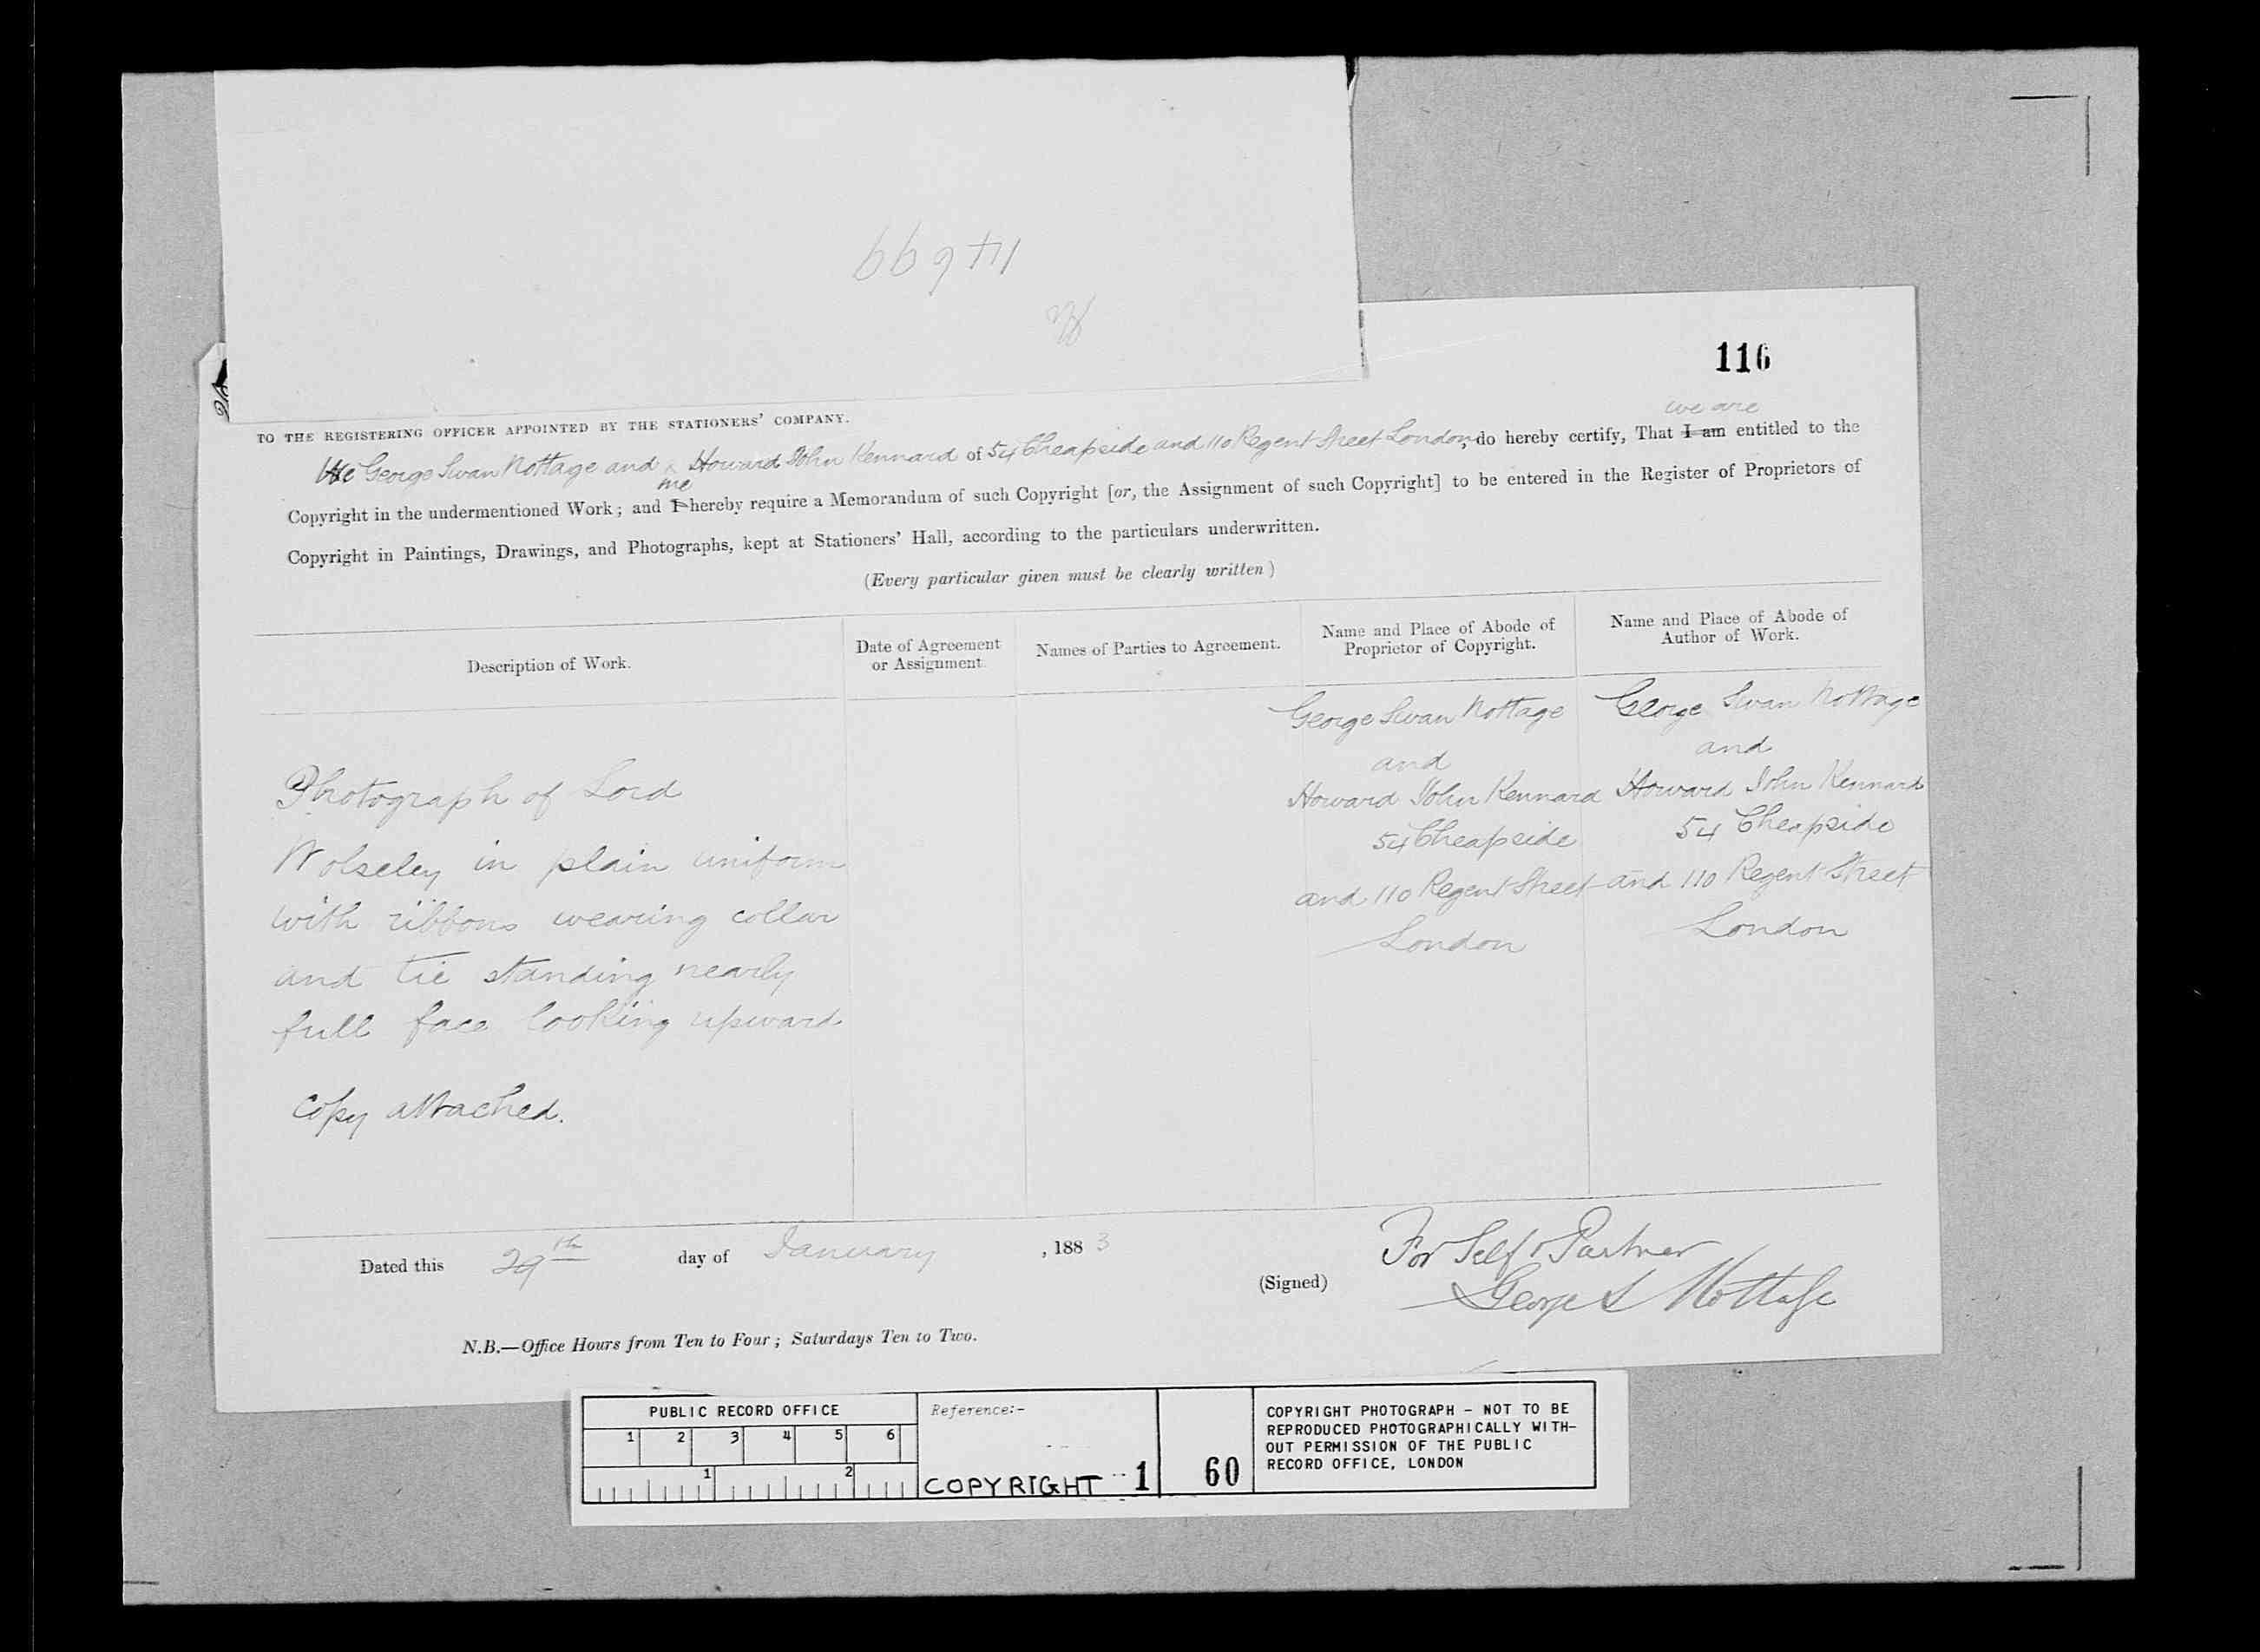 116
TO THE REGISTERING OFFICER APPOINTED BY THE STATIONERS' COMPANY.
we are
We George Swan Nottage and Howard John Kennard of 54 Cheapside and 110 Regent Street London, do hereby certify, That I am entitled to the
we
Copyright in the undermentioned Work; and I hereby require a Memorandum of such Copyright [or, the Assignment of such Copyright] to be entered in the Register of Proprietors of
Copyright in Paintings, Drawings, and Photographs, kept at Stationers' Hall, according to the particulars underwritten.
(Every particular given must be clearly written)
Description of Work.
Date of Agreement
or Assignment
Names of Parties to Agreement.
Name and Place of Abode of
Proprietor of Copyright.
Name and Place of Abode of
Author of Work.
Photograph of Lord
Wolseley in plain uniform
with ribbons wearing collar
and tie standing nearly
full face looking upward
Copy attached.
George Swan Nottage
and
Howard John Kennard
54 Cheapside
and 110 Regent Street
London
George Swan Nottage
and
Howard John Kennard
54 Cheapside
and 110 Regent Street
London
Dated this 29th day of January, 1883
(Signed)
For Self & Partner
George S Nottage
N.B.—Office Hours from Ten to Four; Saturdays Ten to Two.
PUBLIC RECORD OFFICE
1 2 3 4 5 6
1 2
Reference:-
COPYRIGHT 1
60
COPYRIGHT PHOTOGRAPH - NOT TO BE
REPRODUCED PHOTOGRAPHICALLY WITH-
OUT PERMISSION OF THE PUBLIC
RECORD OFFICE, LONDON